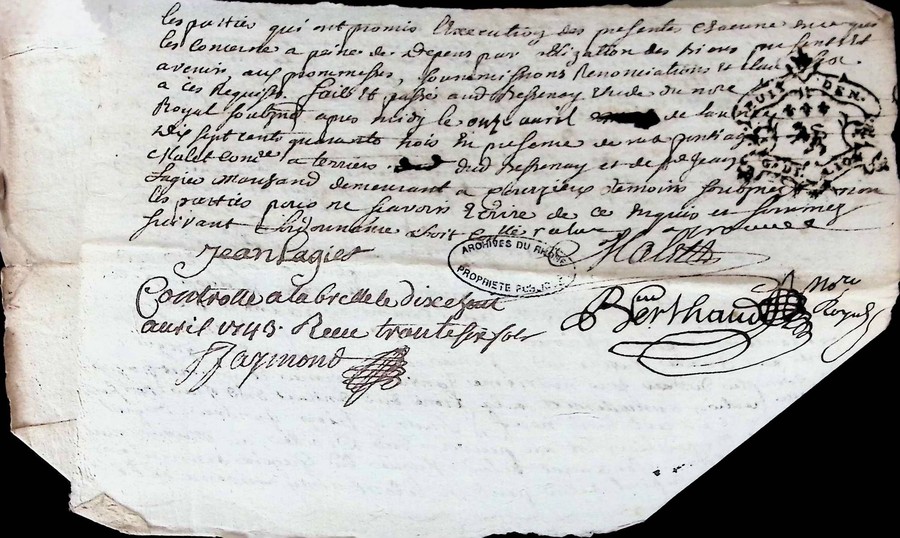 les parties qui ont promis l'execution des presentes chacune en ce qui
les concerne a peine de depens par obligation des biens presents et
avenir, aux promesses, soummissions Renonciations et clauses
a ces Requises. fait et passé aud Bressenay Etude du no.re
Royal soubné apres midy le onze avril de l'année
Mil sept cents quarante trois En presence de
Malet Com.re a terriers dud Bressenay et de Sr Jean
Lagier marchand demeurant a temoins soubsnés non
les parties pour ne sçavoir Ecrire de ce enquis et sommes
suivant l'ordonnance
Jean Lagier
Malet
ARCHIVES DU RHONE
PROPRIETE PUBLIQUE
GENT. LION
Controlle a la bresle le dix sept
avril 1743. Receu trente six sols
Raymond
Berthaud No.re Royal